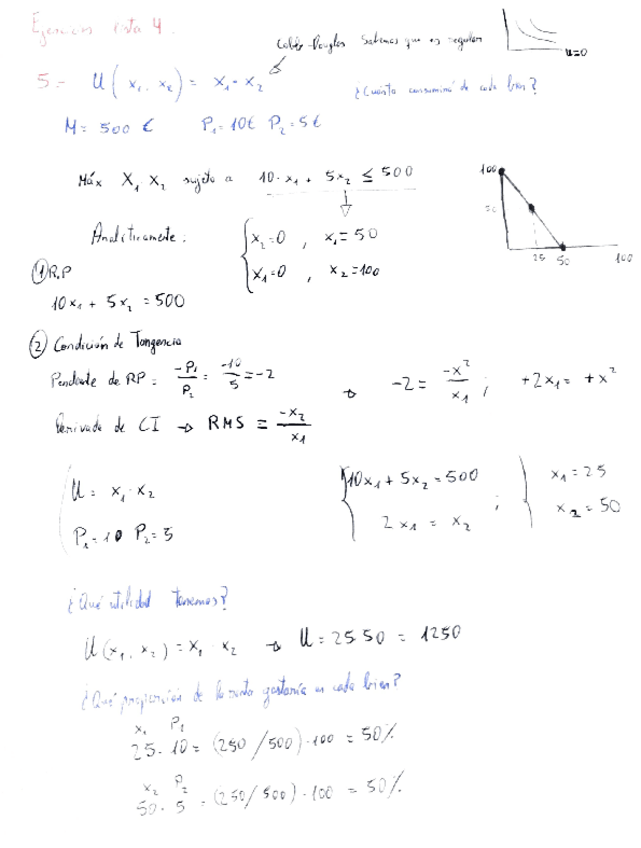 Ejercicios lista 4.
Cobb-Douglas Sabemos que es regular
u=0
5.- U(x₁, x₂) = x₁·x₂
¿Cuánto consumimá de cada bien?
M = 500 € P₁ = 10€ P₂ = 5€
Máx X₁ X₂ sujeto a 10·x₁ + 5x₂ ≤ 500
100
50
25 50 100
Analíticamente: { x₂=0 , x₁=50
x₁=0 , x₂=100
① R.P
10x₁ + 5x₂ = 500
② Condición de Tangencia
Pendiente de RP = -P₁/P₂ = -10/5 = -2 → -2 = -x²/x₁ ; +2x₁ = +x²
Derivada de CI → RMS = -x₂/x₁
U = x₁·x₂
P₁=10 P₂=5
{ 10x₁ + 5x₂ = 500
2x₁ = x₂ ;
{ x₁ = 25
x₂ = 50
¿Qué utilidad tenemos?
U(x₁, x₂) = x₁·x₂ → U = 25·50 = 1250
¿Qué proporción de la renta gastaría en cada bien?
x₁ P₁
25·10 = (250/500)·100 = 50%
x₂ P₂
50·5 = (250/500)·100 = 50%